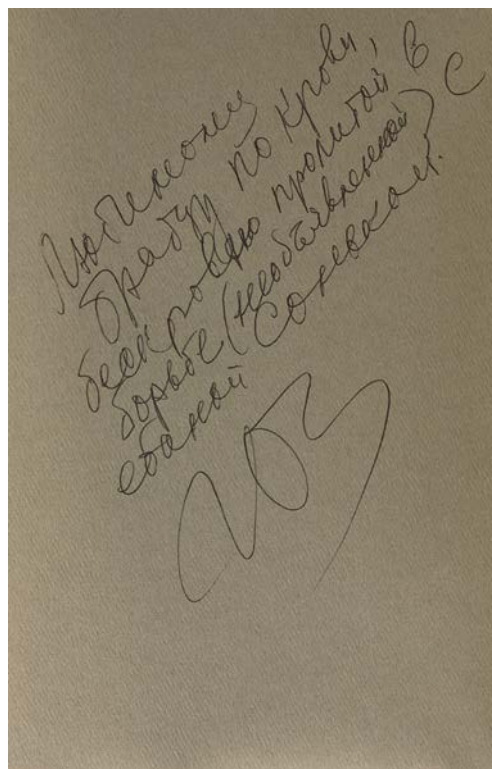 Любимому
брату по крови,
бескровно пролитой в
борьбе (необъявленной) с
ебаной Совьехой.